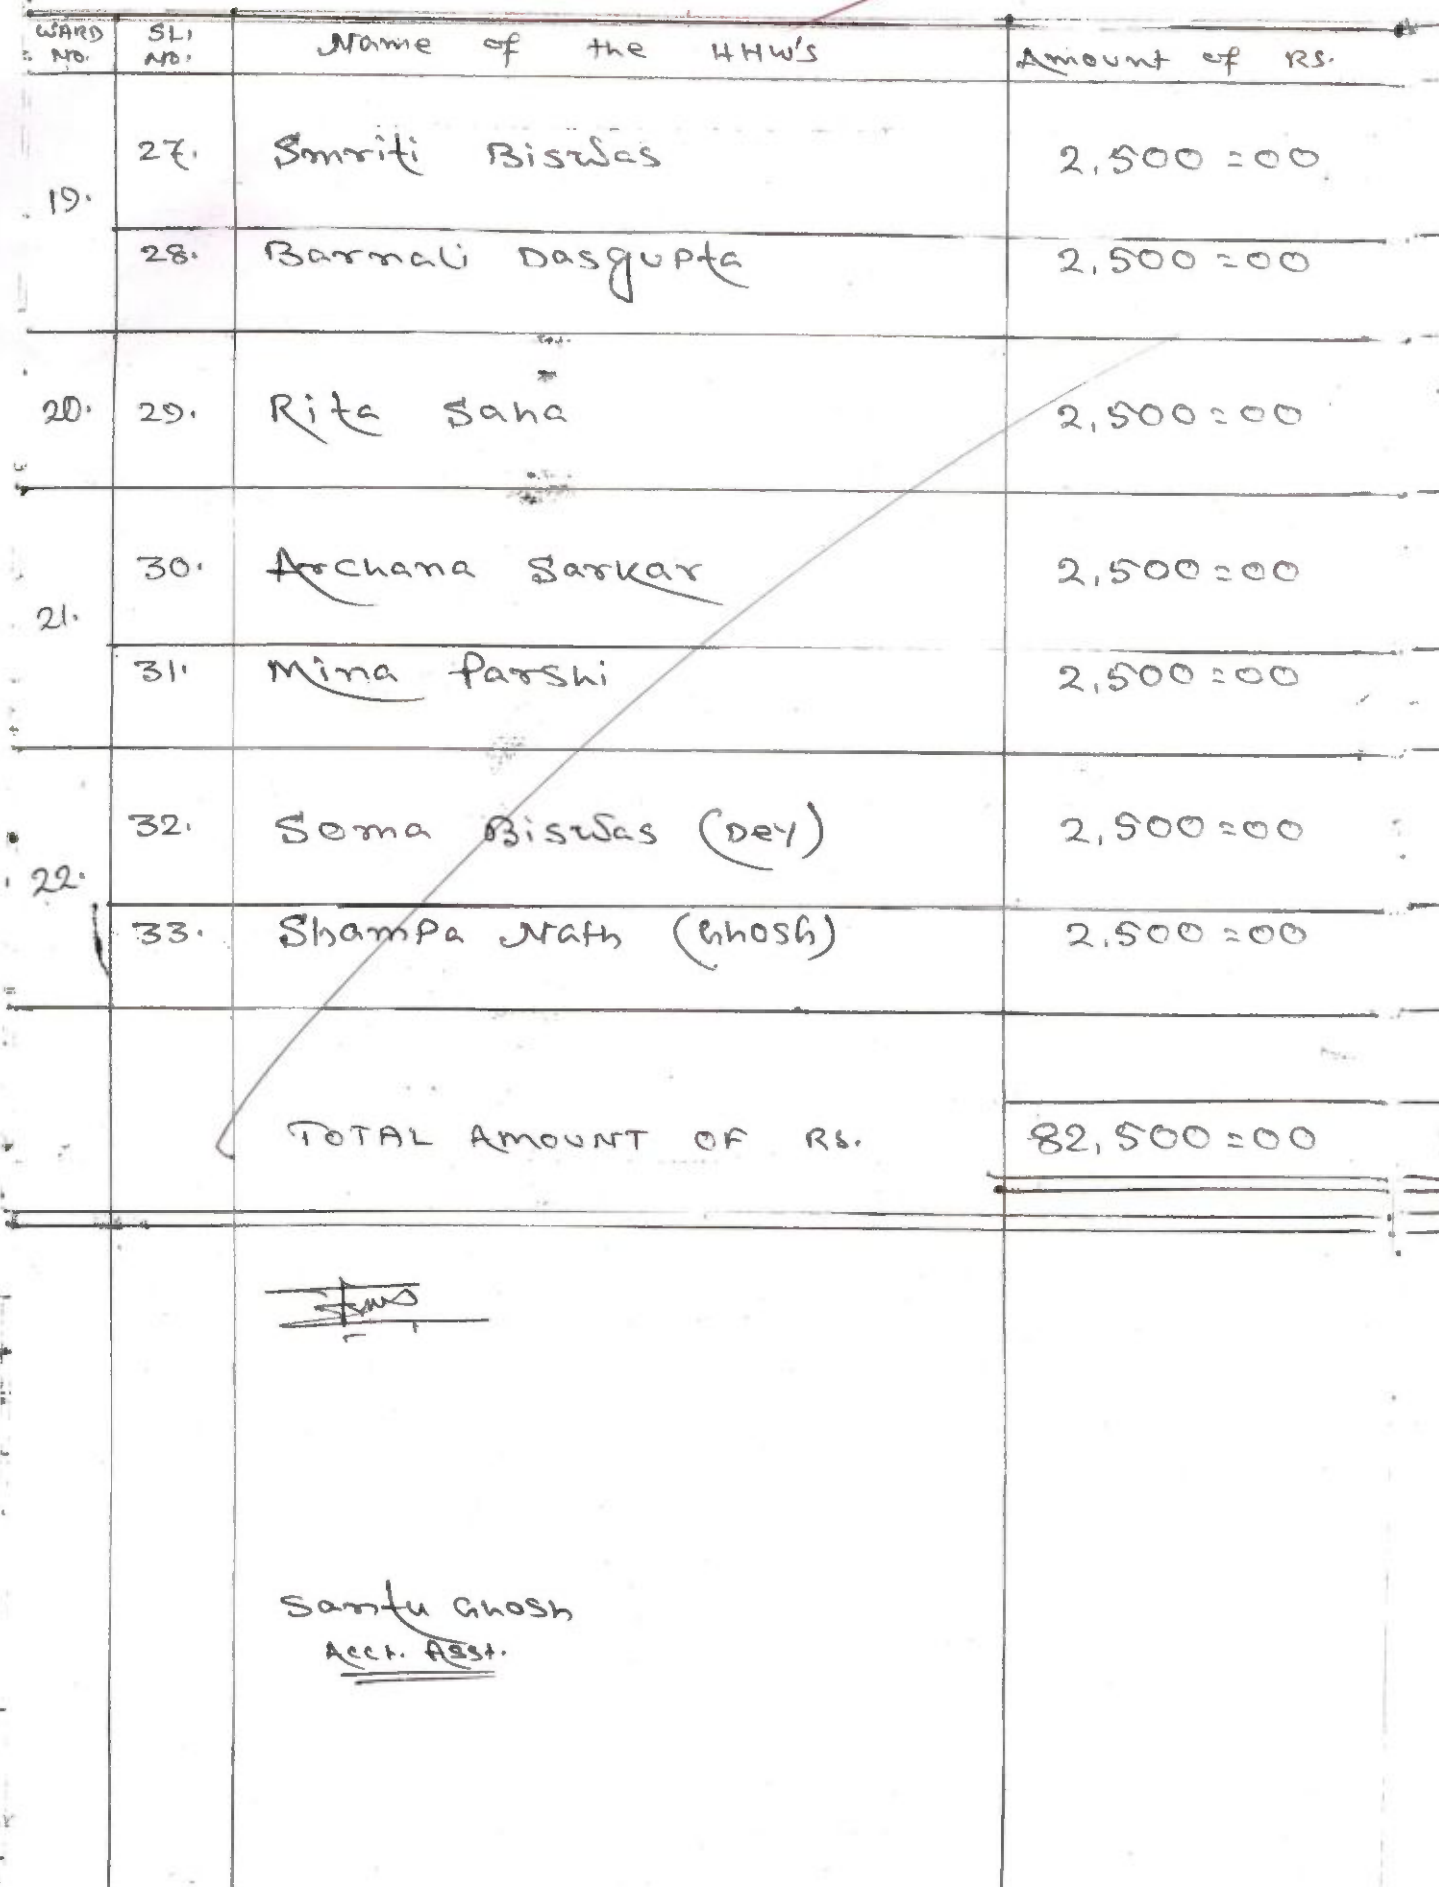 WARD NO. SL. NO. Name of the HHW's Amount of RS.
19.
27. Smriti Biswas 2,500=00
28. Barnali Dasgupta 2,500=00
20. 29. Rita Saha 2,500=00
21.
30. Archana Sarkar 2,500=00
31. Mina Parshi 2,500=00
22.
32. Soma Biswas (Dey) 2,500=00
33. Shampa Nath (Ghosh) 2,500=00
TOTAL AMOUNT OF RS. 82,500=00
Santu Ghosh
Acct. Asst.